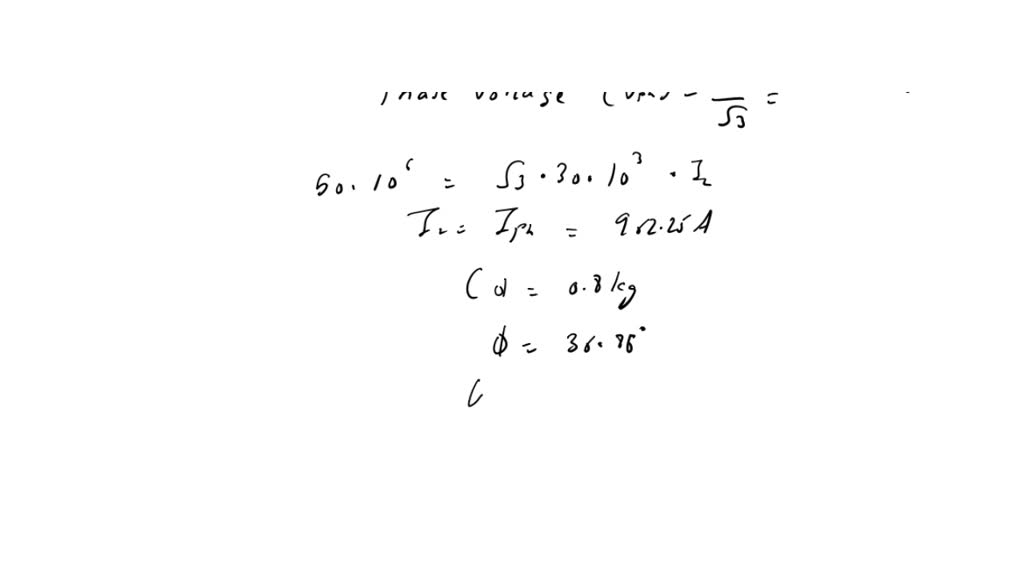 Phase Voltage (Vph) = — / √3 =
50.10⁶ = √3 . 30.10³ . I_L
I_L = I_ph = 962.25 A
= 0.8
ϕ = 36.86°
(